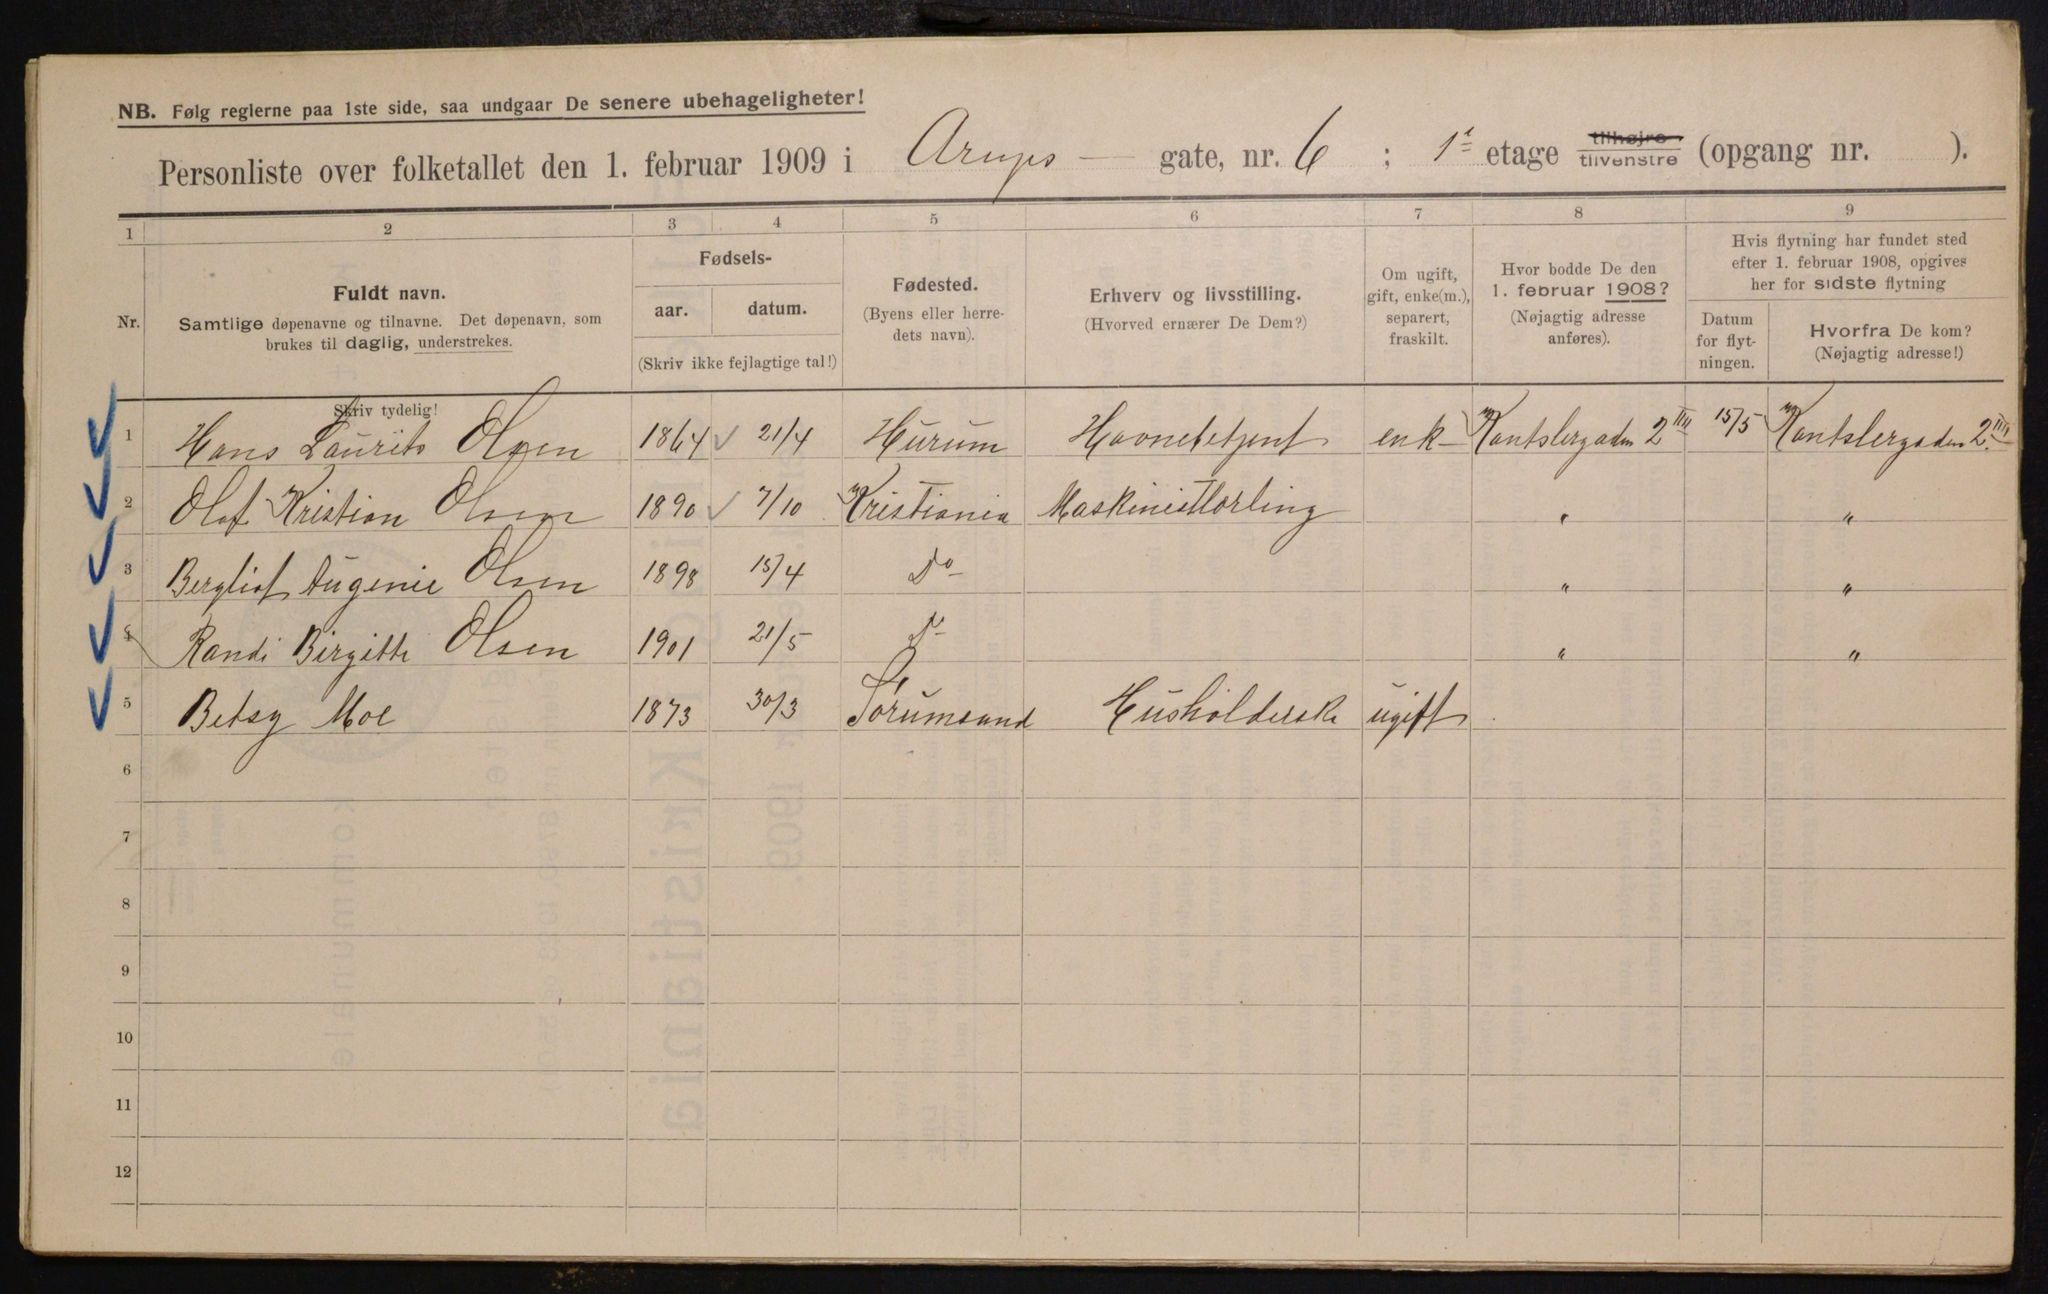 NB. Følg reglerne paa 1ste side, saa undgaar De senere ubehageligheter!
Personliste over folketallet den 1. februar 1909 i Arups — gate, nr. 6 ; 1ste etage tilhøjre tilvenstre (opgang nr. ).
1 2 3 4 5 6 7 8 9
Nr.
Fuldt navn.
Samtlige døpenavne og tilnavne. Det døpenavn, som
brukes til daglig, understrekes.
Fødsels-
aar. datum.
(Skriv ikke fejlagtige tal!)
Fødested.
(Byens eller herre-
dets navn).
Erhverv og livsstilling.
(Hvorved ernærer De Dem?)
Om ugift,
gift, enke(m.),
separert,
fraskilt.
Hvor bodde De den
1. februar 1908?
(Nøjagtig adresse
anføres).
Hvis flytning har fundet sted
efter 1. februar 1908, opgives
her for sidste flytning
Datum
for flyt-
ningen.
Hvorfra De kom?
(Nøjagtig adresse!)
Skriv tydelig!
1 Hans Laurits Olsen 1864 21/4 Hurum Havnebetjent enk- Kantslergaden 2 IIII 15/5 Kantslergaden 2 IIII
2 Olaf Kristian Olsen 1890 7/10 Kristiania Maskinistlærling " "
3 Bergliot Augenie Olsen 1898 15/4 Do " "
4 Randi Birgitte Olsen 1901 21/5 Do " "
5 Betsy Moe 1873 30/3 Sørumsand Husholderske ugift
6
7
8
9
10
11
12